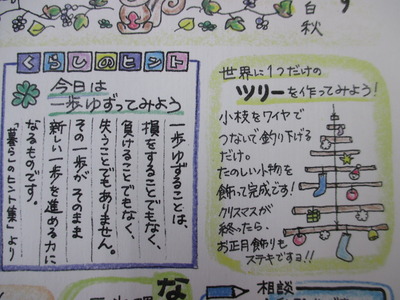 白
秋
くらしのヒント
今日は
一歩ゆずってみよう
一歩ゆずることは、
損をすることでもなく、
負けることでもなく、
失うことでもありません。
その一歩が、そのまま
新しい一歩を進める力に
なるものです。
「暮らしのヒント集」より
世界に1つだけの
ツリーを作ってみよう!
小枝をワイヤで
つないで釣り下げる
だけ。
たのしい小物を
飾って完成です!
クリスマスが
終ったら、
お正月飾りも
ステキですョ!!
な
相談